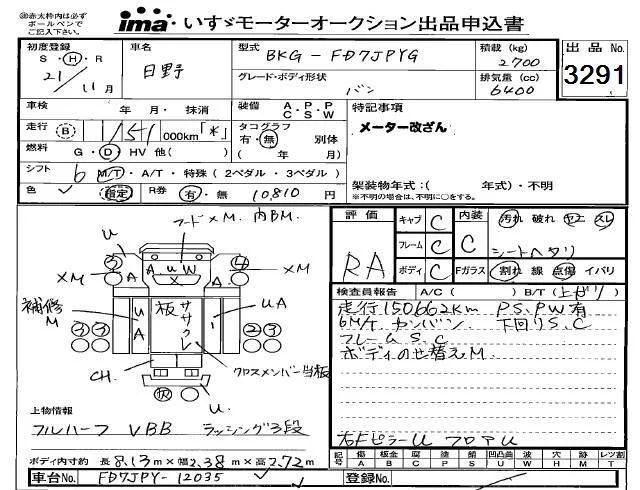 ㊟赤太枠内は必ず
ボールペンで
ご記入下さい。
ima いすゞモーターオークション出品申込書
初度登録 S・H・R 21/11月
車名 日野
型式 BKG-FD7JPYG
グレード・ボディ形状 バン
積載 (kg) 2700
排気量 (cc) 6400
出品 No. 3291
車検 年・月・抹消
装備 A・P・P C・S・W
特記事項
メーター改ざん
走行 B 1151 000km「*」
タコグラフ 有・無 別体 ( 年 月)
燃料 G・D・HV 他( )
シフト 6 M/T・A/T・特殊 (2ペダル・3ペダル)
架装物年式:( 年式)・不明
※不明の場合は、不明に○をする。
色 指定 R券 有・無 10,810 円
フードメM. 内BM.
U
③ ④
メM メM
A A U W A
X
補修
M
U A 板 ササクレ UA
③③ ②③
CH. クロスメンバー当板
沢
U.
上物情報
フルハーフ VBB ラッシング3段
ボディ内寸約 長8.13m×幅2.38m×高2.72m
車台No. FD7JPY-12035
評価 RA
キャブ C
フレーム C
ボディ C
内装 C
汚れ 破れ ヤエ スレ
シートヘタリ
Fガラス 割れ 線 点傷 イバリ
検査員報告 A/C( ) B/T(上ゼリ)
走行150662km P.S,P.W有
6M/T カンバン 下回りS.C
フレームS.C
ボディのせ替えM.
右FピラーU フロアU
記号 傷A 鈑金B 腐C 塗P 錆S 凹凸曲U 波W 穴H 跡M レンズ割T
登録No.